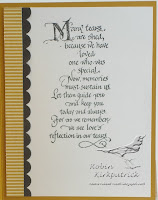 Many tears
are shed,
because we have
loved
one who was
special.
Now, memories
must sustain us
Let them guide you
and keep you
today and always
For as we remember,
we see love's
reflection in our tears.
Robin
Kirkpatrick